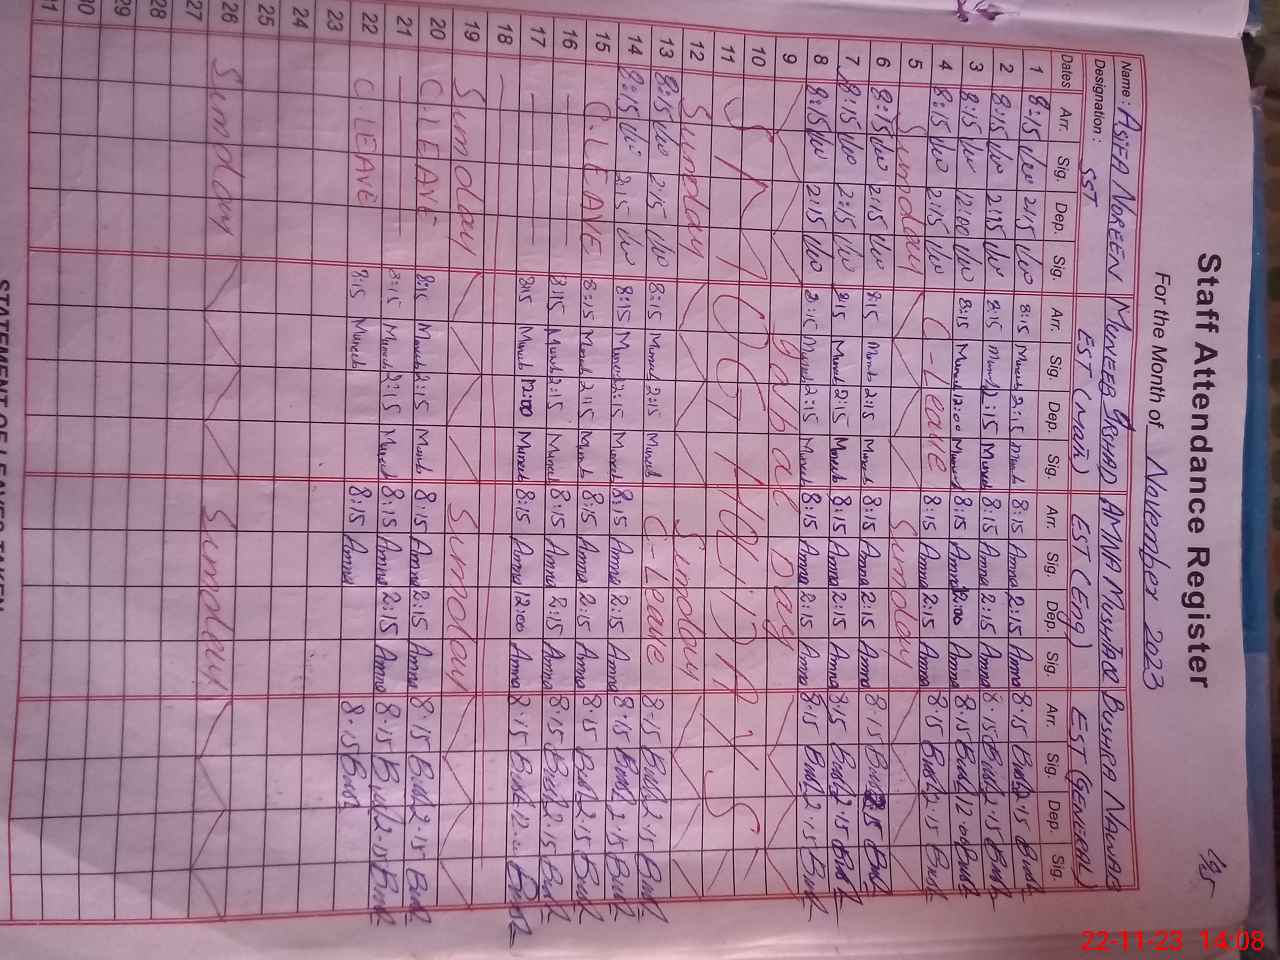 Staff Attendance Register
For the Month of November 2023
Name : ASIFA NOREEN MUNEEB ARSHAD AMNA MUSHTAQ BUSHRA NAWAB
Designation : SST EST (Math) EST (Eng) EST (GENERAL)
Dates Arr. Sig. Dep. Sig. Arr. Sig. Dep. Sig. Arr. Sig. Dep. Sig. Arr. Sig. Dep. Sig.
1 8:15 2:15 8:15 Muneeb 2:15 Muneeb 8:15 Amna 2:15 Amna 8:15 Bush 2:15 Bush
2 8:15 2:15 8:15 Muneeb 2:15 Muneeb 8:15 Amna 2:15 Amna 8:15 Bush 2:15 Bush
3 8:15 12:00 8:15 Muneeb 12:00 Muneeb 8:15 Amna 12:00 Amna 8:15 Bush 12:00 Bush
4 8:15 2:15 C-Leave 8:15 Amna 2:15 Amna 8:15 Bush 2:15 Bush
5 Sunday Sunday
6 8:15 2:15 8:15 Muneeb 2:15 Muneeb 8:15 Amna 2:15 Amna 8:15 Bush 2:15 Bush
7 8:15 2:15 8:15 Muneeb 2:15 Muneeb 8:15 Amna 2:15 Amna 8:15 Bush 2:15 Bush
8 8:15 2:15 8:15 Muneeb 2:15 Muneeb 8:15 Amna 2:15 Amna 8:15 Bush 2:15 Bush
9 Iqbal Day
10 SMOG HOLIDAYS
11
12 Sunday Sunday
13 8:15 2:15 8:15 Muneeb 2:15 Muneeb C-Leave 8:15 Bush 2:15 Bush
14 8:15 2:15 8:15 Muneeb 2:15 Muneeb 8:15 Amna 2:15 Amna 8:15 Bush 2:15 Bush
15 C.LEAVE 8:15 Muneeb 2:15 Muneeb 8:15 Amna 2:15 Amna 8:15 Bush 2:15 Bush
16 8:15 Muneeb 2:15 Muneeb 8:15 Amna 2:15 Amna 8:15 Bush 2:15 Bush
17 8:15 Muneeb 12:00 Muneeb 8:15 Amna 12:00 Amna 8:15 Bush 12:00 Bush
18
19 Sunday Sunday
20 C.LEAVE 8:15 Muneeb 2:15 Muneeb 8:15 Amna 2:15 Amna 8:15 Bush 2:15 Bush
21 8:15 Muneeb 2:15 Muneeb 8:15 Amna 2:15 Amna 8:15 Bush 2:15 Bush
22 C.LEAVE 8:15 Muneeb 8:15 Amna 8:15 Bush
23
24
25
26 Sunday Sunday
27
28
29
30
31
STATEMENT OF LEAVES TAKEN
22-11-23 14:08